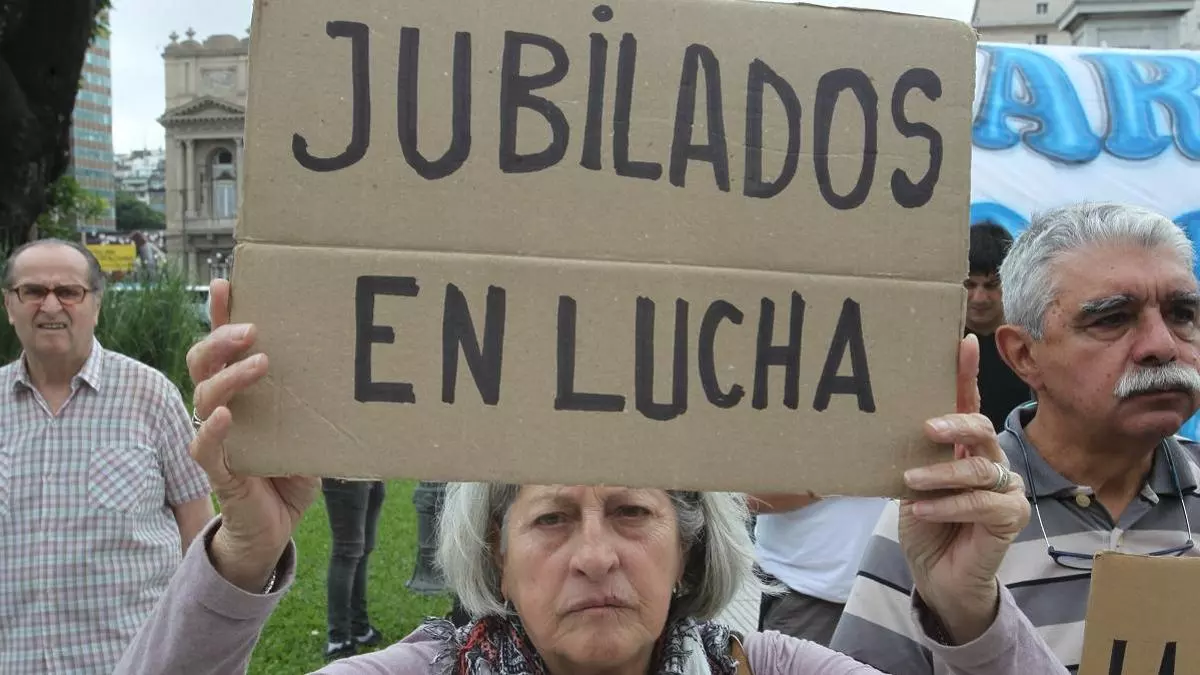 JUBiLADOS
EN LUCHA